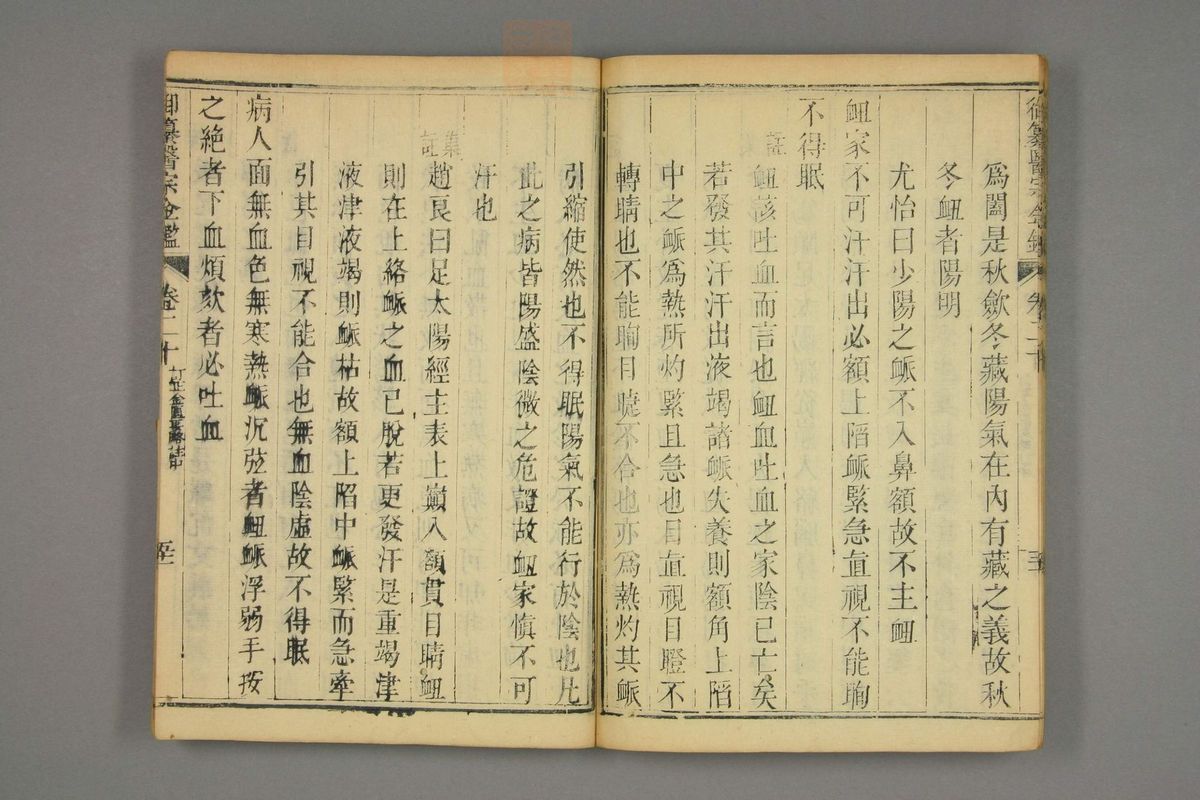 御纂醫宗金鑑 卷二十
爲闔是秋斂冬藏陽氣在內有藏之義故秋
冬衂者陽明
尤怡曰少陽之脈不入鼻頞故不主衂
衂家不可汗汗出必額上陷脈緊急直視不能眴
不得眠
註
衂該吐血而言也衂血吐血之家陰已亡矣
若發其汗汗出液竭諸脈失養則額角上陷
中之脈爲熱所灼緊且急也目直視目瞪不
轉睛也不能眴目睫不合也亦爲熱灼其脈
引縮使然也不得眠陽氣不能行於陰也凡
此之病皆陽盛陰微之危證故衂家愼不可
汗也
集註
趙良曰足太陽經主表上巔入額貫目睛衂
則在上絡脈之血已脫若更發汗是重竭津
液津液竭則脈枯故額上陷中脈緊而急牽
引其目視不能合也無血陰虛故不得眠
病人面無血色無寒熱脈沉弦者衂脈浮弱手按
之絶者下血煩欬者必吐血
御纂醫宗金鑑 卷二十 訂正金匱要略注中